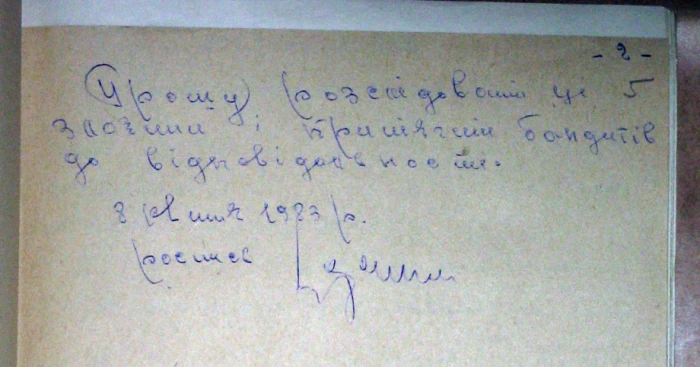 - 2 -
Прошу розслідовати ці 5
злочини і притягти бандитів
до відповідальности.
8 квітня 1983 р.
роспись